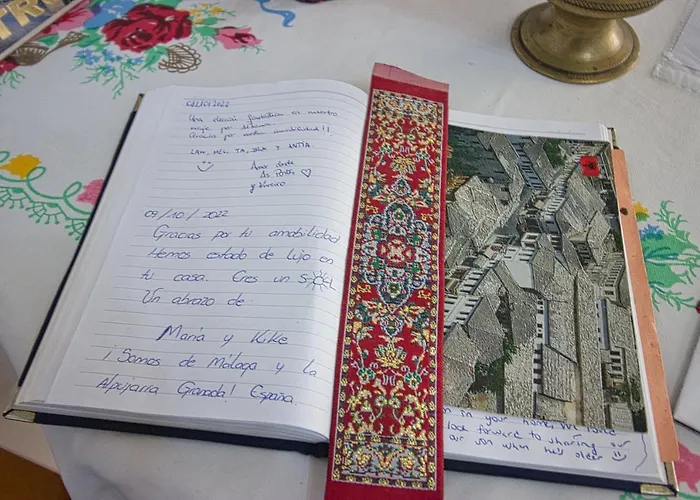 TR
02/10/2022
Una elección fantástica en nuestro
viaje por
Gracias por vuestra amabilidad!!
Y ANTÍA
Amor desde
As Pontes
y Viveiro
09/10/2022
Gracias por tu amabilidad
Hemos estado de lujo en
tu casa. Eres un SOL
Un abrazo de
María y Kike
¡Somos de Málaga y la
Alpujarra Granada! España.
in your home. We
look forward to sharing our
our son when he's older